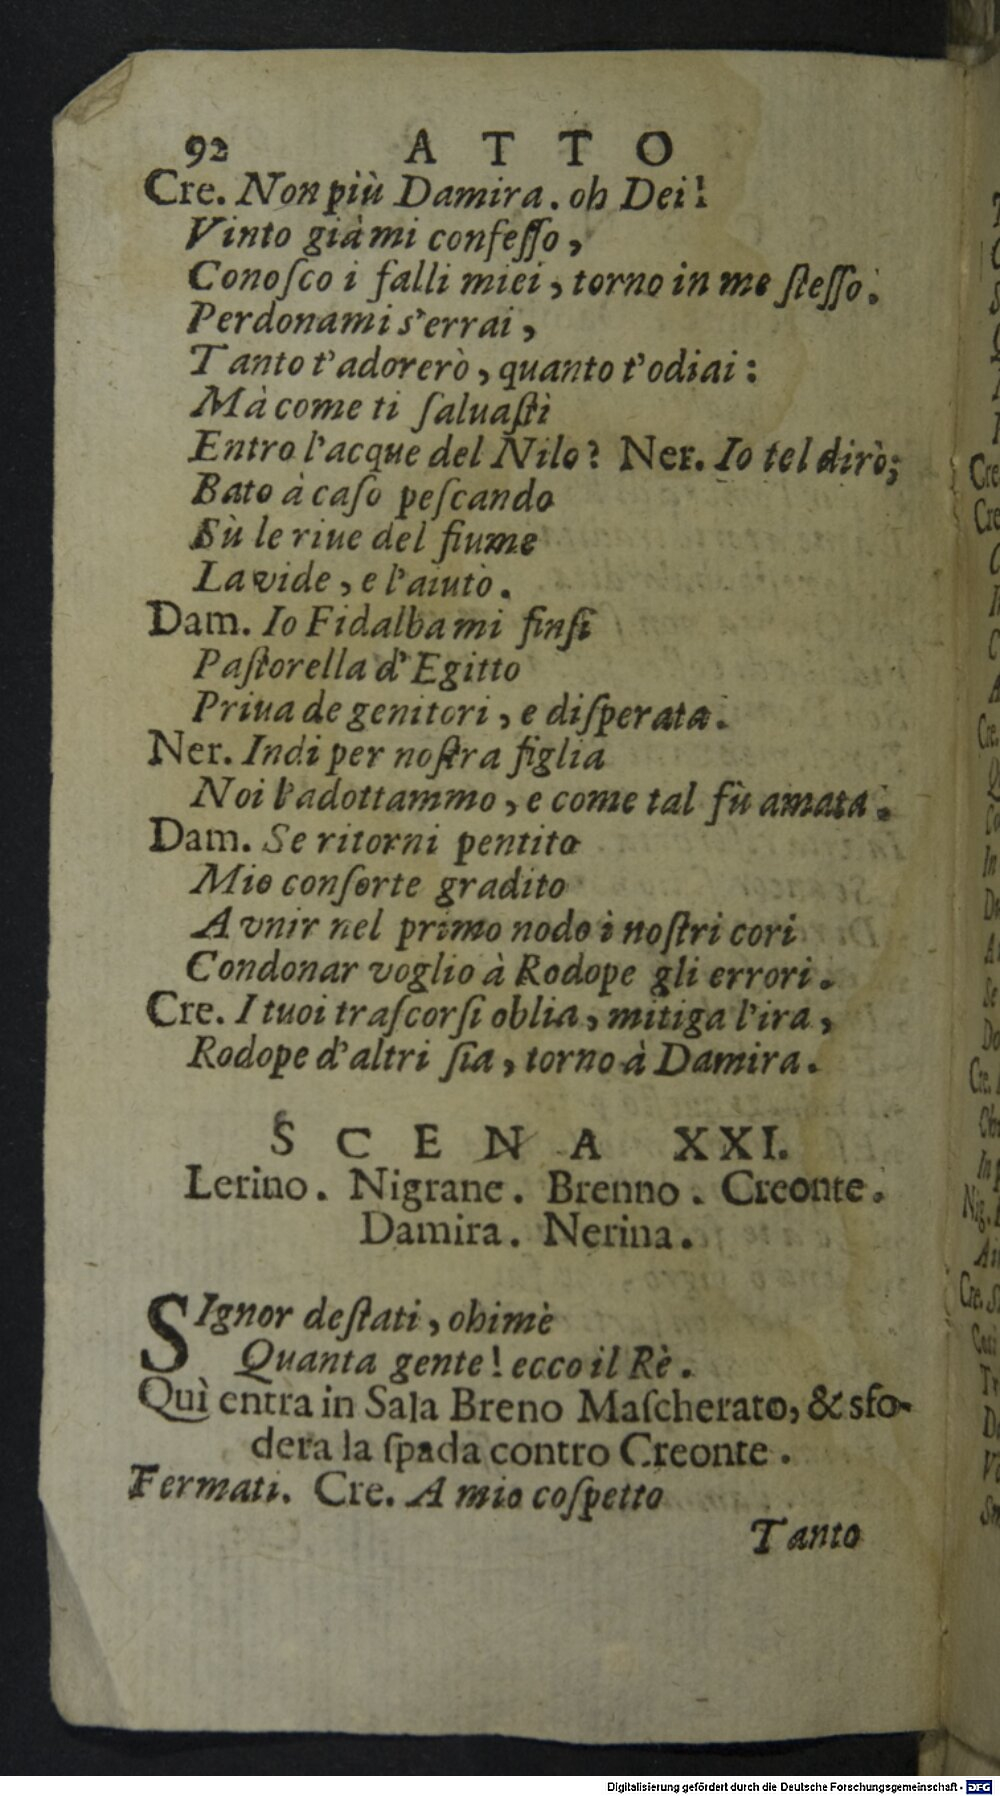 92 ATTO
Cre. Non più Damira. oh Dei!
Vinto già mi confeſſo,
Conoſco i falli miei, torno in me ſteſſo.
Perdonami s'errai,
Tanto t'adorerò, quanto t'odiai:
Mà come ti ſaluaſti
Entro l'acque del Nilo? Ner. Io tel dirò;
Bato à caſo peſcando
Sù le riue del fiume
La vide, e l'aiutò.
Dam. Io Fidalba mi finſi
Paſtorella d'Egitto
Priua de genitori, e diſperata.
Ner. Indi per noſtra figlia
Noi l'adottammo, e come tal fù amata.
Dam. Se ritorni pentito
Mio conſorte gradito
A vnir nel primo nodo i noſtri cori
Condonar voglio à Rodope gli errori.
Cre. I tuoi traſcorſi oblia, mitiga l'ira,
Rodope d'altri ſia, torno à Damira.
SCENA XXI.
Lerino. Nigrane. Brenno. Creonte.
Damira. Nerina.
SIgnor deſtati, ohimè
Quanta gente! ecco il Rè.
Quì entra in Sala Breno Maſcherato, & sfo-
dera la ſpada contro Creonte.
Fermati. Cre. A mio coſpetto
Tanto
Digitalisierung gefördert durch die Deutsche Forschungsgemeinschaft - DFG